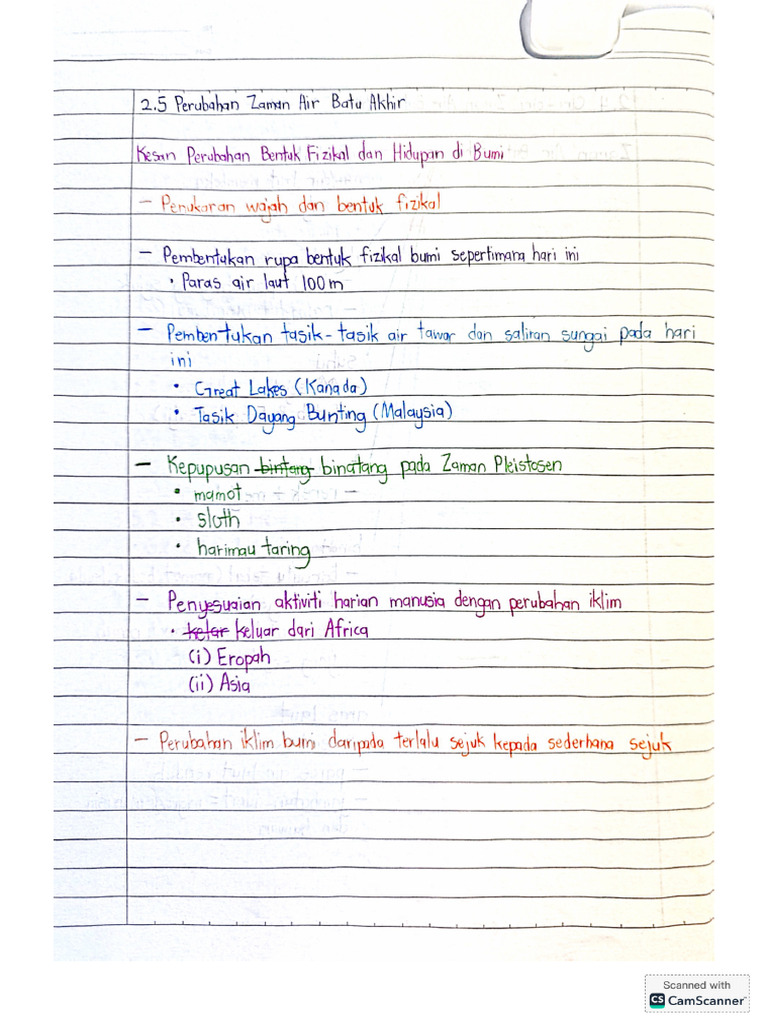 2.5 Perubahan Zaman Air Batu Akhir
Kesan Perubahan Bentuk Fizikal dan Hidupan di Bumi
- Penukaran wajah dan bentuk fizikal
- Pembentukan rupa bentuk fizikal bumi sepertimana hari ini
• Paras air laut 100m
- Pembentukan tasik-tasik air tawar dan saliran sungai pada hari
ini
• Great Lakes (Kanada)
• Tasik Dayang Bunting (Malaysia)
- Kepupusan bintang binatang pada Zaman Pleistosen
• mamot
• sloth
• harimau taring
- Penyesuaian aktiviti harian manusia dengan perubahan iklim
• kelar keluar dari Africa
(i) Eropah
(ii) Asia
- Perubahan iklim bumi daripada terlalu sejuk kepada sederhana sejuk
Scanned with
CS CamScanner